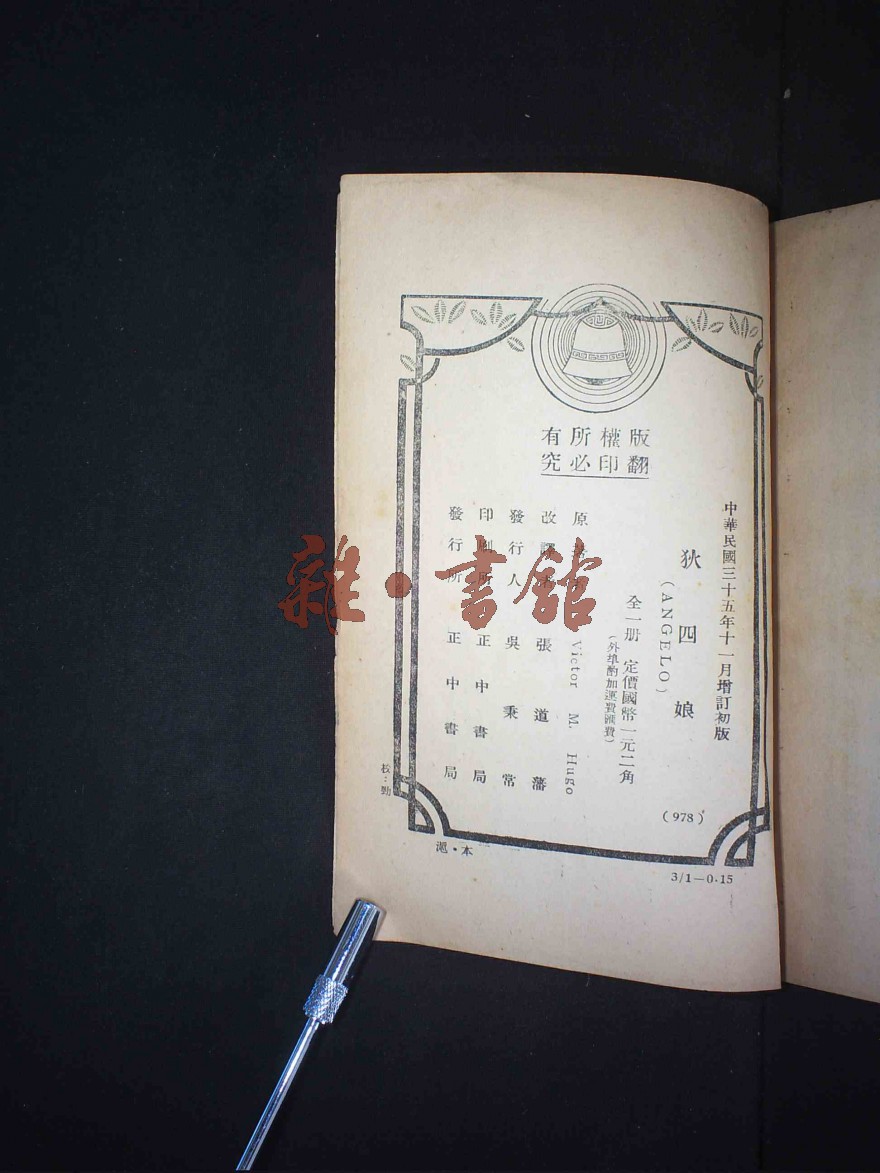 版權所有
翻印必究
中華民國三十五年十一月增訂初版
狄四娘
(ANGELO)
全一册 定價國幣一元二角
(外埠酌加運費匯費)
原著者 Victor M. Hugo
改譯者 張道藩
發行人 吳秉常
印刷所 正中書局
發行所 正中書局
(978)
校:勁
滬·本
3/1—0.15
雜·書館